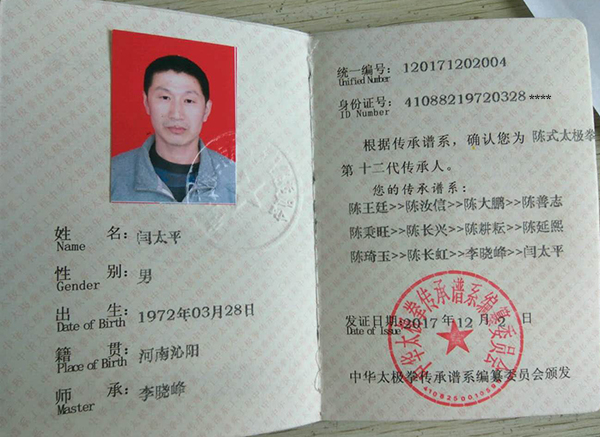 姓 名：闫太平
Name
性 别：男
Gender
出 生：1972年03月28日
Date of Birth
籍 贯：河南沁阳
Place of Birth
师 承：李晓峰
Master
统一编号：120171202004
Unified Number
身份证号：41088219720328****
ID Number
根据传承谱系，确认您为 陈式太极拳
第 十二代传承人。
您的传承谱系：
陈王廷>>陈汝信>>陈大鹏>>陈善志
陈秉旺>>陈长兴>>陈耕耘>>陈延熙
陈琦玉>>陈长虹>>李晓峰>>闫太平
发证日期：2017年 12月 2日
Date of Issue
中华太极拳传承谱系编纂委员会
中华太极拳传承谱系编纂委员会颁发